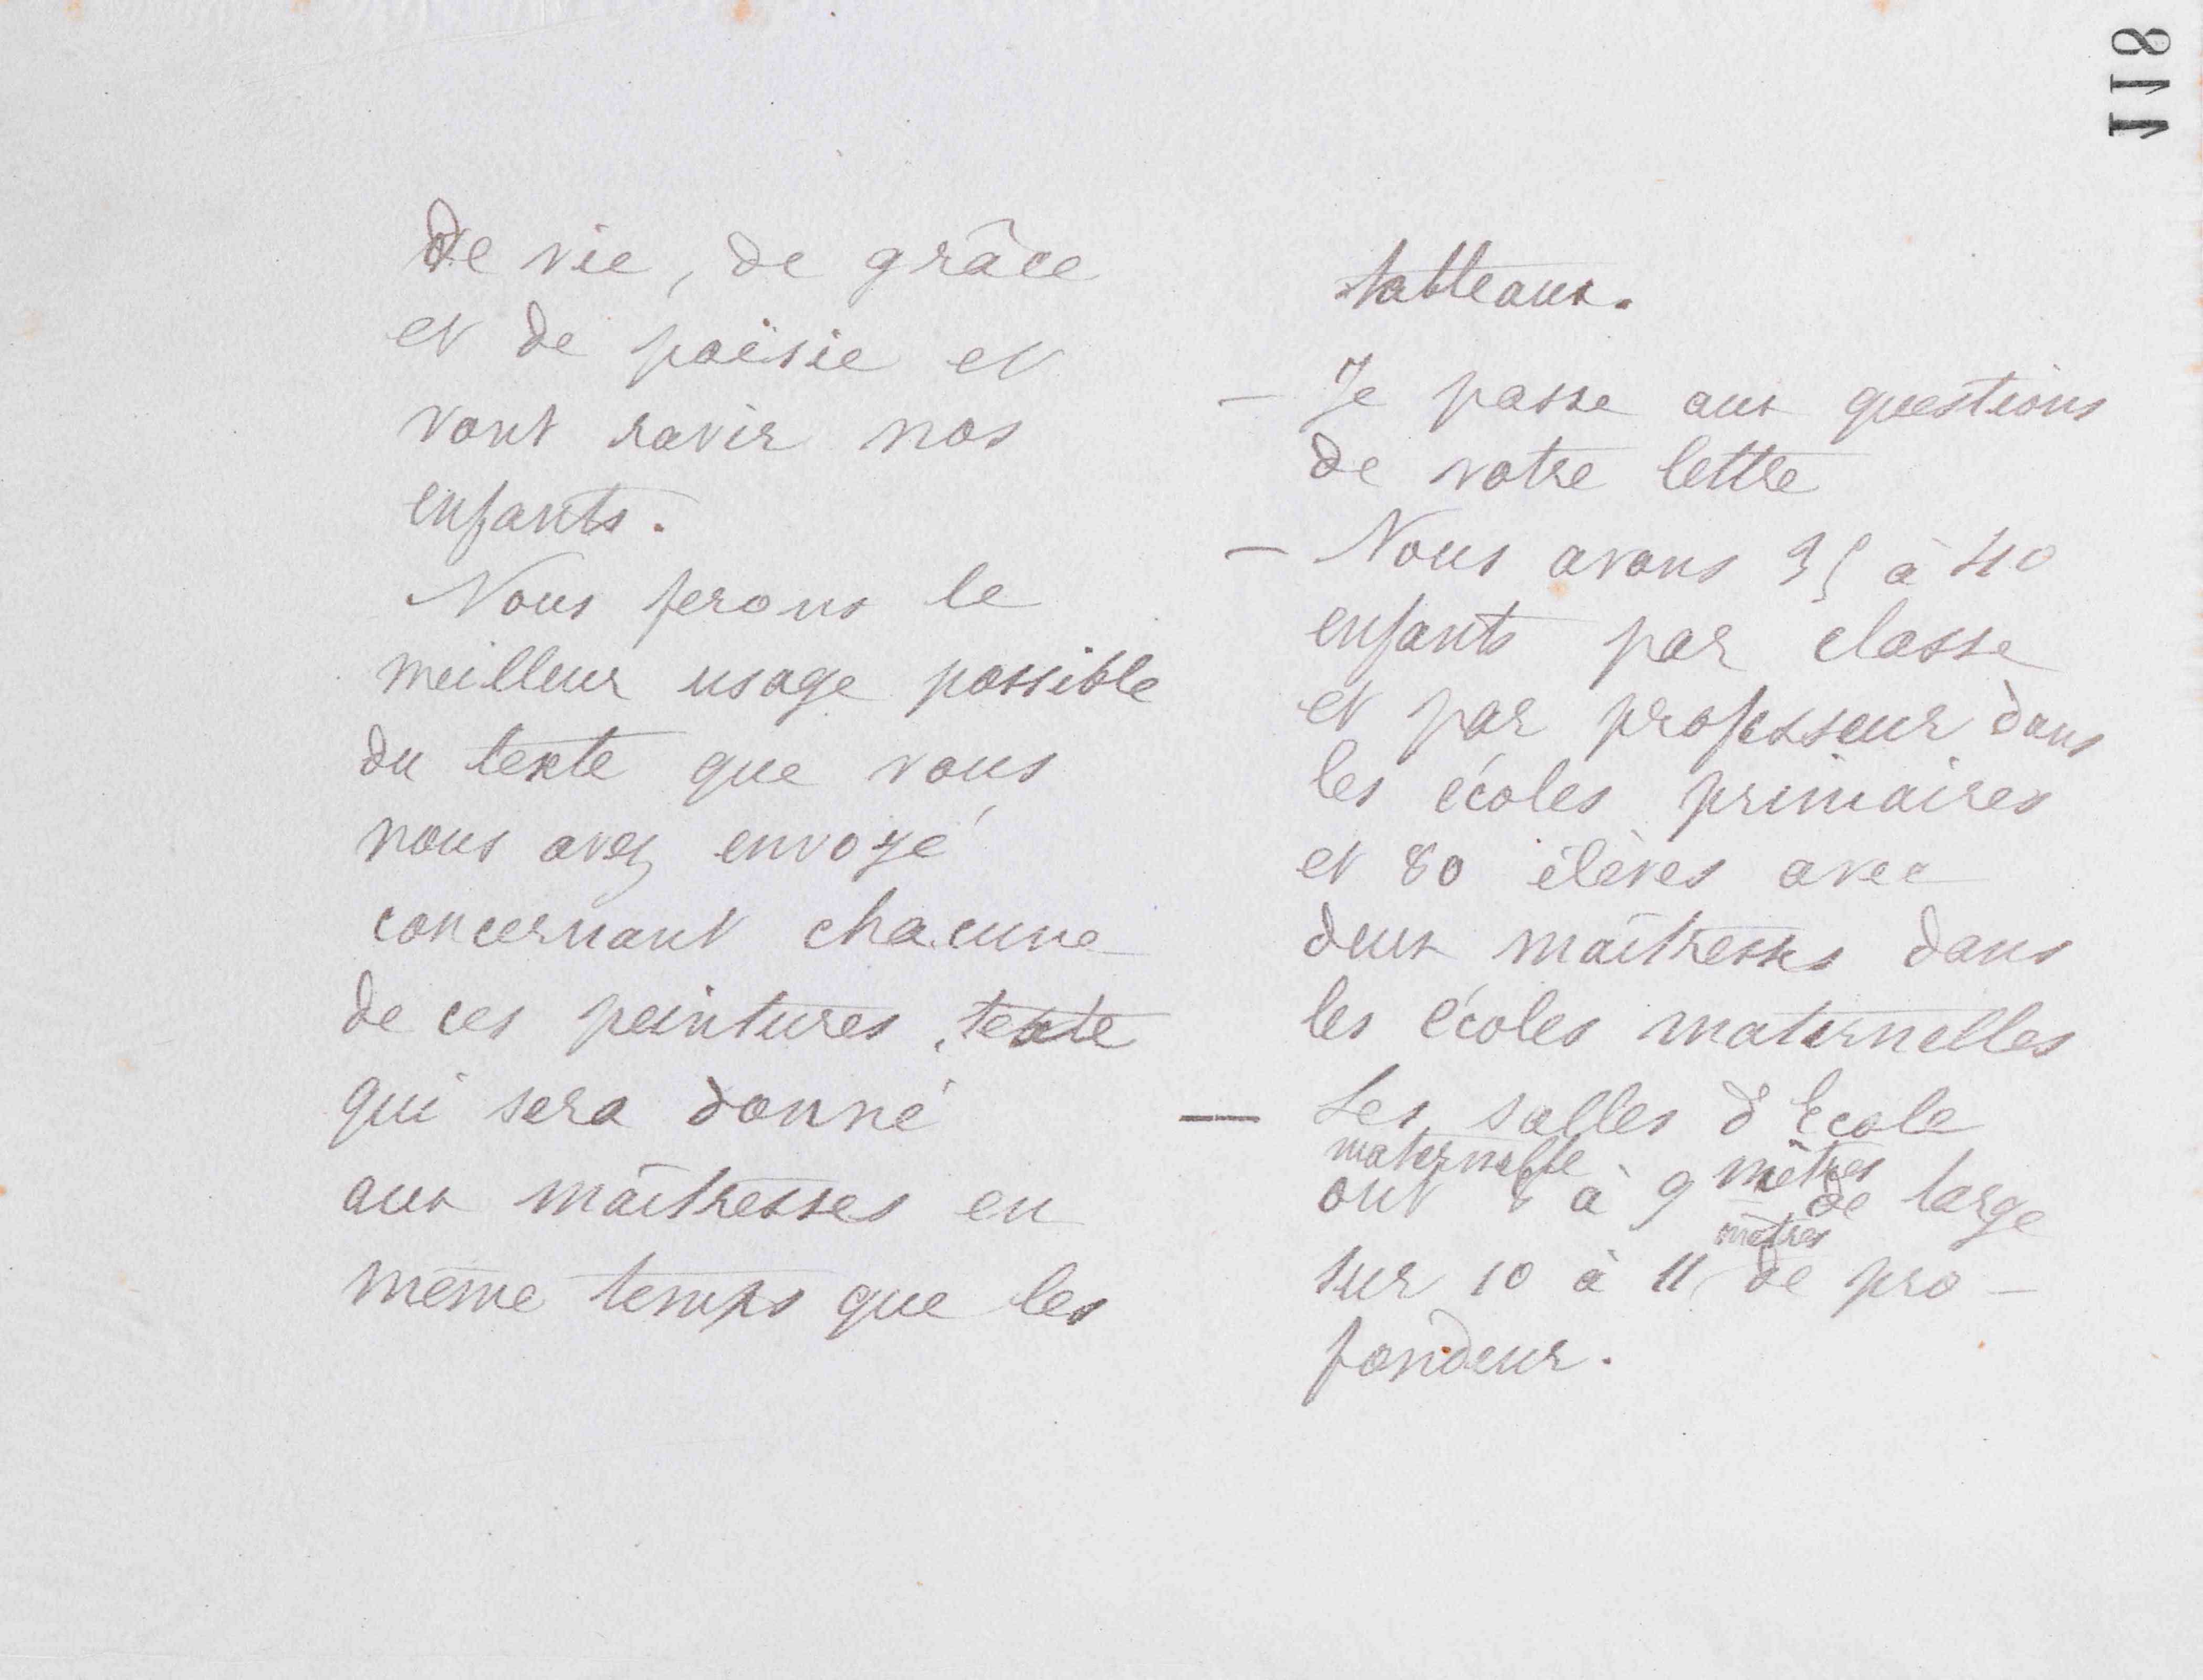 118
de vie, de grâce
et de poësie et
vont ravir nos
enfants.
Nous ferons le
meilleur usage possible
du texte que vous
nous avez envoyé
concernant chacune
de ces peintures, texte
qui sera donné
aux maîtresses en
même temps que les
tableaux.
— Je passe aux questions
de votre lettre
— Nous avons 35 à 40
enfants par classe
et par professeur dans
les écoles primaires
et 80 élèves avec
deux maîtresses dans
les écoles maternelles
— Les salles d'école
maternelle
ont 8 à 9 mètres de large
sur 10 à 11 mètres de pro-
fondeur.